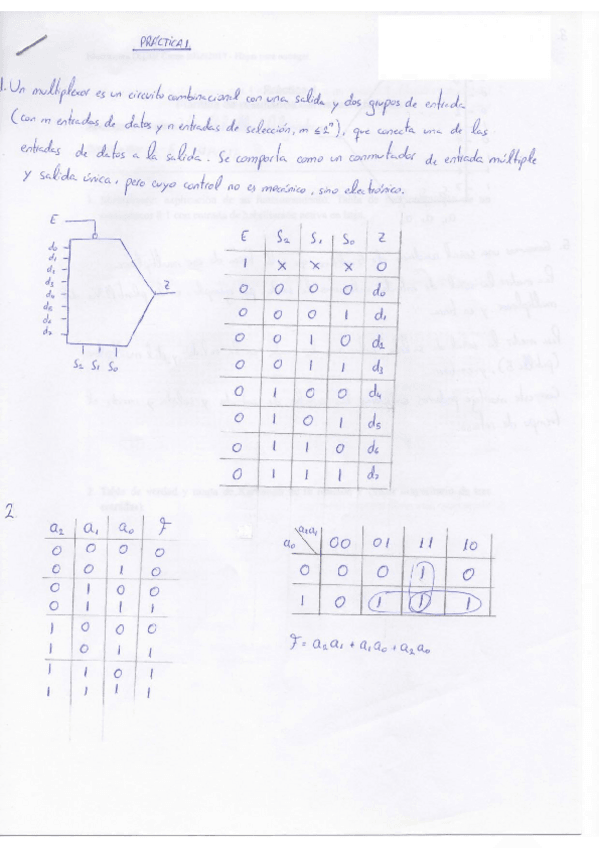 PRÁCTICA 1
1. Un multiplexor es un circuito combinacional con una salida y dos grupos de entrada
(con m entradas de datos y n entradas de selección, m ≤ 2ⁿ), que conecta una de las
entradas de datos a la salida. Se comporta como un conmutador de entrada múltiple
y salida única, pero cuyo control no es mecánico, sino electrónico.
E
d₀
d₁
d₂
d₃
d₄
d₅
d₆
d₇
Z
S₂ S₁ S₀
E S₂ S₁ S₀ Z
1 x x x 0
0 0 0 0 d₀
0 0 0 1 d₁
0 0 1 0 d₂
0 0 1 1 d₃
0 1 0 0 d₄
0 1 0 1 d₅
0 1 1 0 d₆
0 1 1 1 d₇
2
a₂ a₁ a₀ F
0 0 0 0
0 0 1 0
0 1 0 0
0 1 1 1
1 0 0 0
1 0 1 1
1 1 0 1
1 1 1 1
a₂a₁
a₀ 00 01 11 10
0 0 0 1 0
1 0 1 1 1
F = a₂a₁ + a₁a₀ + a₂a₀